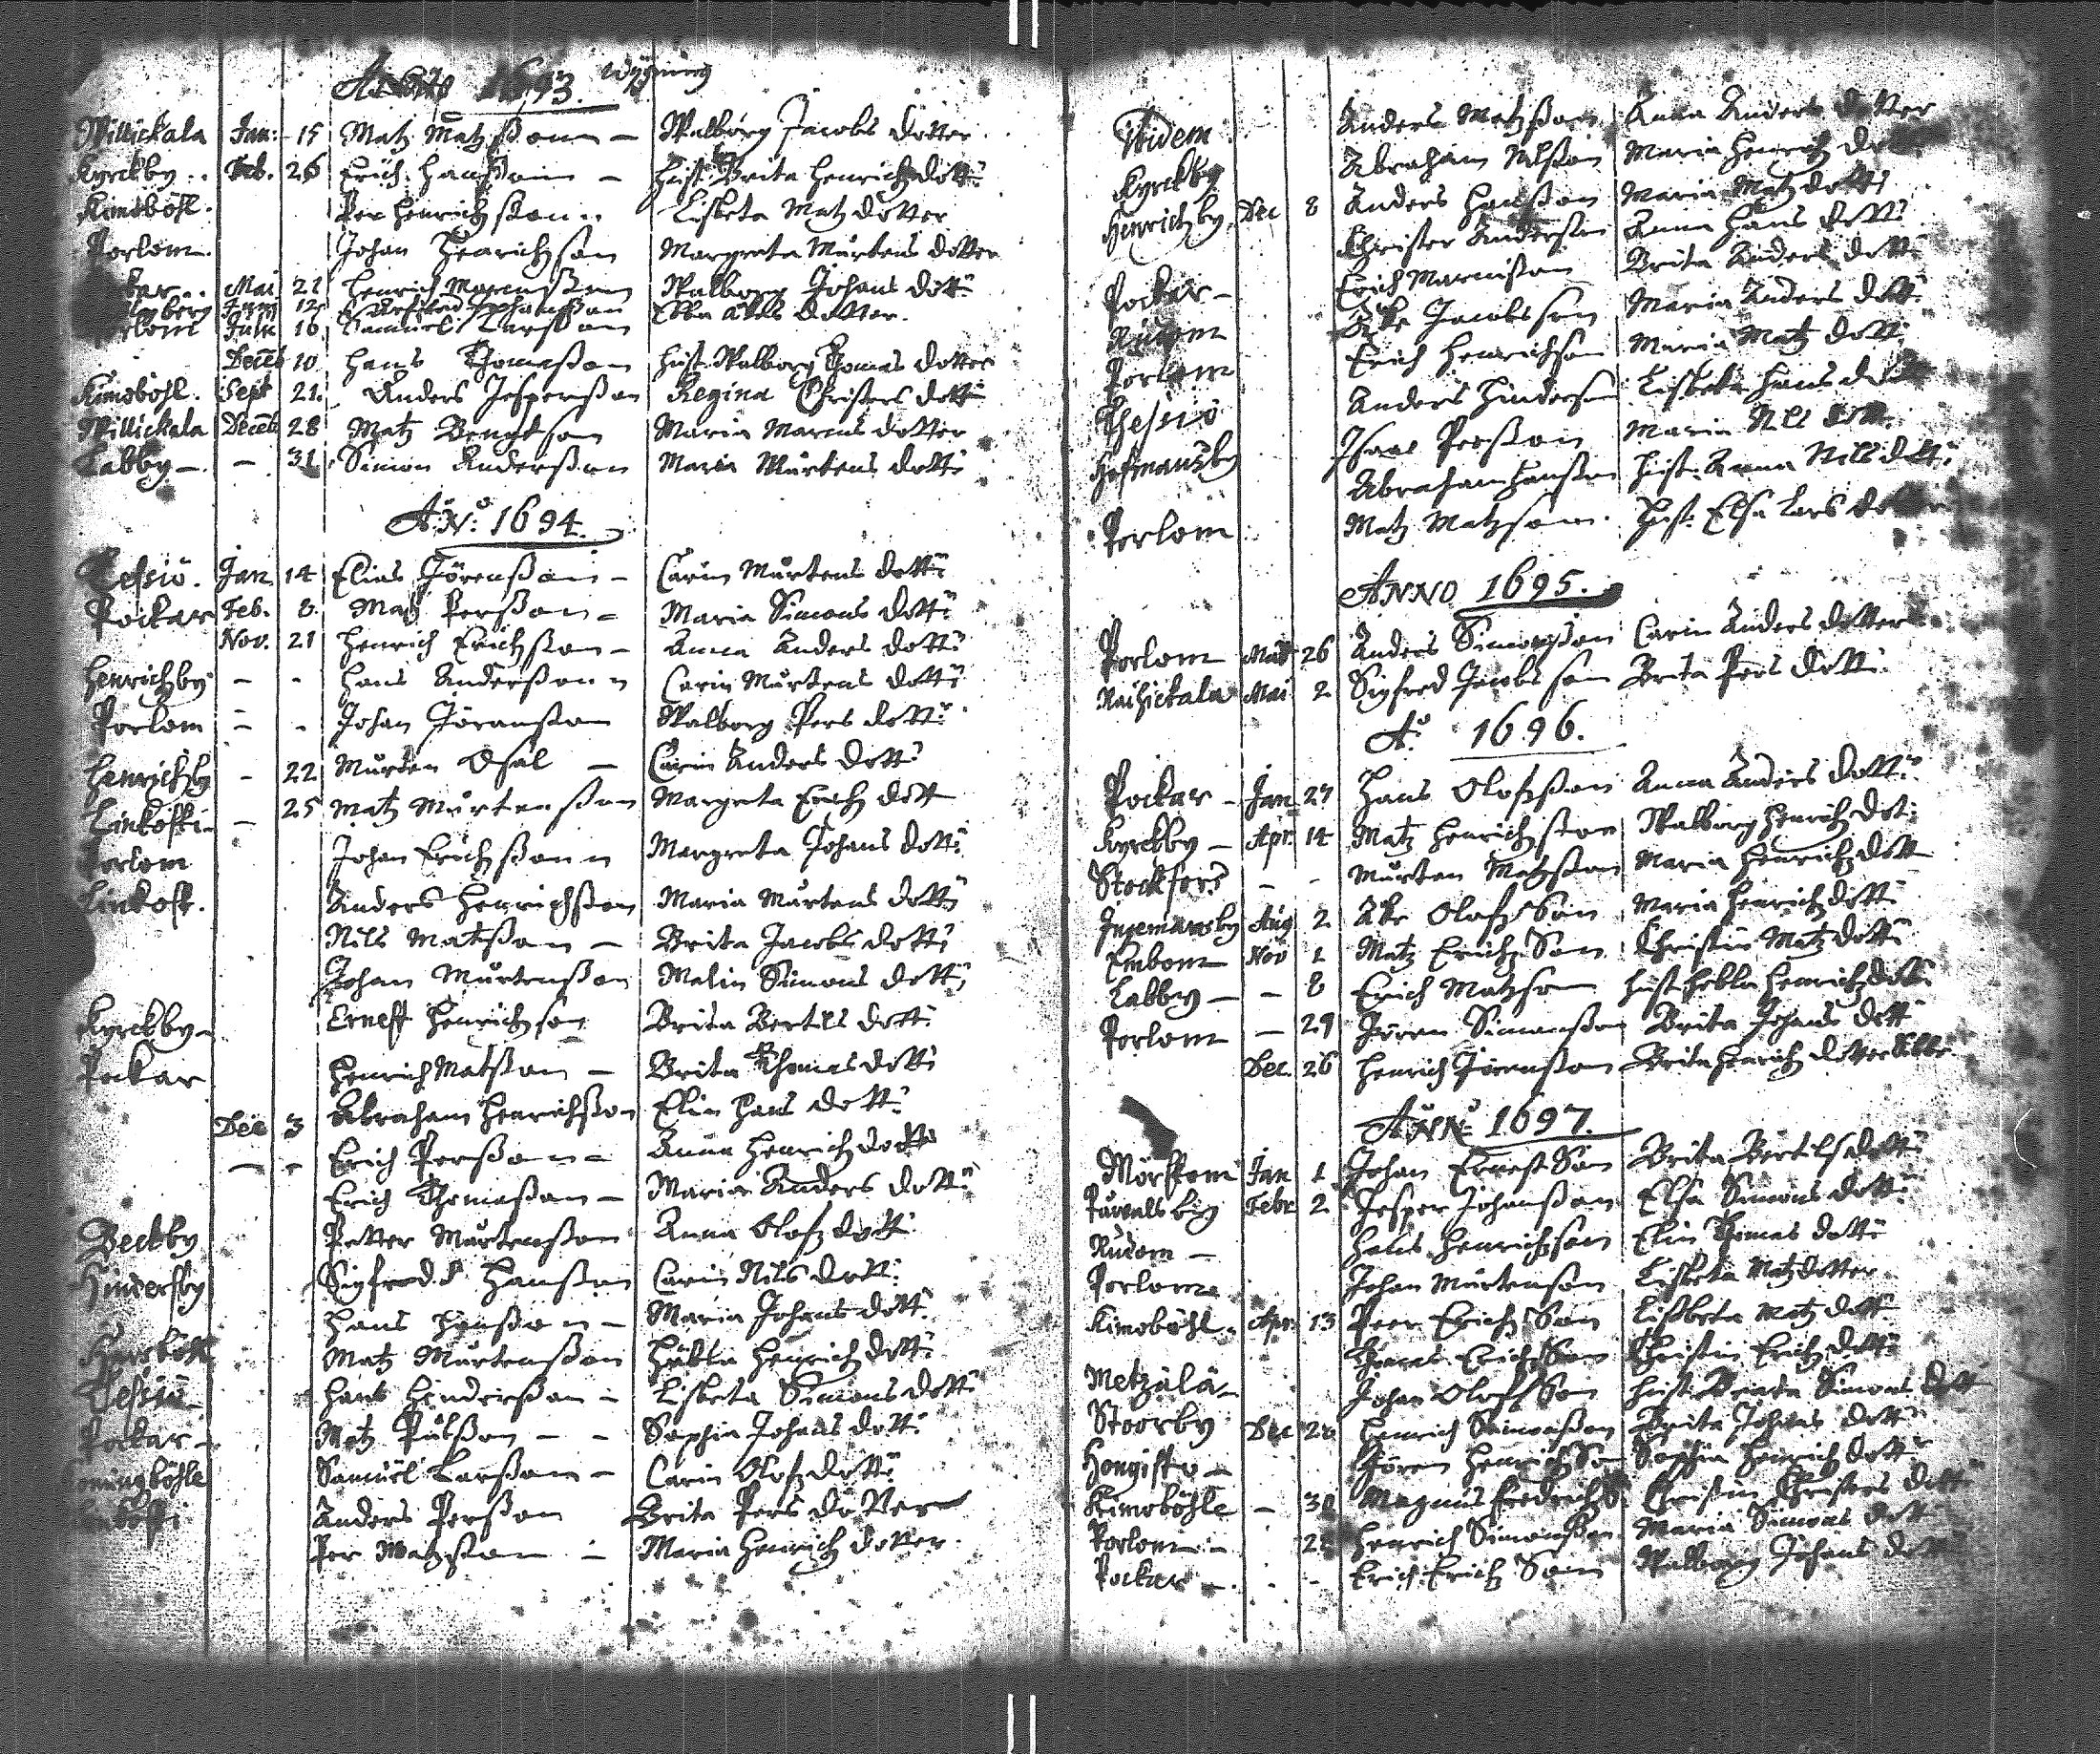 Anno 1693. wigning
Willickala Jan: 15 Matz Matzsson Walborg Jacobs dotter
Kyrckby Feb. 26 Erich Hansson hust. Brita Henrichz dott:
Kimoböhl. Per Henrichsson Lisbeta Matz dotter
Porlom. Johan Henrichsson Margreta Mårtens dotter
Mai 21 Henrich Marcusson Walborg Johans dott:
12 Johansson Ebba Axels dotter.
Porlom Juli 16 Samuel Larsson
Decēb 10 Hans Thomasson hust. Walborg Thomas dotter
Kimoböhl. Sept 21. Anders Jespersson Regina Christers dott:
Willickala Decēb 28 Matz Bengtson Maria Marcus dotter
Labby - 31 Simon Andersson Maria Mårtens dott:
A:N:º 1694.
Tessiö. Jan 14 Elias Jörensson Carin Mårtens dott:
Pockar Feb. 8. Matz Persson Maria Simons dott:
Nov. 21 Henrich Erichsson Anna Anders dott:
Henrichzby - - Hans Andersson Carin Mårtens dott:
Porlom - - Johan Jöransson Walborg Pers dott:
Henrichzby - 22 Mårten Carin Anders dott:
Linkoski - 25 Matz Mårtensson Margreta Erichz dott
Porlom Johan Erichsson Margreta Johans dott:
Linkosk. Anders Henrichsson Maria Mårtens dott:
Nils Matsson Brita Jacobs dott:
Johan Mårtensson Malin Simons dott:
Kyrckby Ernest Henrichson Brita Bertils dott:
Pockar Henrich Matsson Brita Thomas dott:
Dec 3 Abraham Henrichsson Elin Hans dott:
- - Erich Persson Anna Henrichz dott:
Erich Thomasson Maria Anders dott:
Beckby Petter Mårtensson Anna Olofz dott
Hindersby Sigfred Hansson Carin Nils dott:
Hans Hansson Maria Johans dott.
Matz Mårtensson Hebla Henrichz dott:
Tessiö Hans Hindersson Lisbeta Simons dott:
Pockar Matz Pålsson Sophia Johans dott:
Samuel Larsson Carin Olofz dott:
Anders Persson Brita Pers dotter
Per Matzsson Maria Henrichz dotter.
Ibidem Anders Matzsson Anna Anders dotter
Kyrckby Abraham Nilsson Maria Henrichz
Henrichzby Dec 8 Anders Hansson Maria Matz dott:
Christer Andersson Anna Hans dott:
Pockar Erich Marcusson Brita Anders dott:
Rudom Åke Jacobsson Maria Anders dott:
Porlom Erich Henrichson Maria Matz dott:
Thessiö Anders Hinderson Lisbeta Hans
Hofmansby Isaac Persson Maria Nils dott.
Abraham Hansson hust. Anna Nils dott:
Porlom Matz Matzson. hust. Elsa Lars dotter
ANNO 1695.
Porlom Mar 26 Anders Simonsson Carin Anders dotter
Mai 2 Sigfred Jacobsson Brita Pers dott:
Aº. 1696.
Pockar Jan 27 Hans Olofsson Anna Anders dott:
Kyrckby Apr. 14 Matz Henrichsson Walborg Henrichz dot:
Stockfors - - Mårten Matzsson Maria Henrichz dott
Ingemarsby Aug 2 Åke Olofz Son Maria Henrichz dott:
Embom Nov 1 Matz Erichz Son Christin Matz dott:
Labby - 8 Erich Matzson hust. Hebla Henrichz dott.
Porlom - 29 Jören Simonsson Brita Johans dott
Dec. 26 Henrich Jörensson Brita Henrichz dotter
ANNº 1697.
Mörskom Jan 1 Johan Ernest Son Brita Bertils dott:
Påwalsby Febr. 2 Jesper Johansson Elsa Simons dott:
Rudom Hans Henrichson Elin Thomas dott:
Porlom Johan Mårtensson Lisbeta Matz dotter
Kimoböhl. Apr. 13 Peer Erichz Son Lisbeta Matz dott
Thomas Erichz Son Christin Erichz dott:
Metzälä Johan Olofz Son hust. Simons dott
Stoorby Dec Henrich Brita Johans dott:
Hongisto Jören Henrichz Son Sophia Henrichz dott:
Kimoböhle - Magnus Fredrichz S. Christin Christers dott
Porlom Henrich Simonsson Maria Simons dott
Pockar Erich Erichz Son Walborg Johans dott